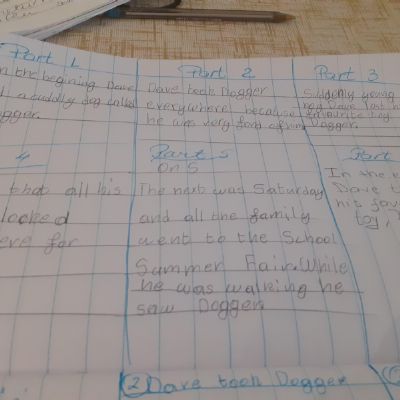 Part 1
n the begining Dave
a cuddly dog called
gger.
Part 2
Dave took Dogger
everywhere because
he was very fond of him
Part 3
Suddenly young
Dave lost h
favourite toy
Dogger.
4
that all his
looked
ere for
Part 5
On S
The next was Saturday
and all the family
went to the School
Summer Fair. While
he was walking he
saw Dogger.
Part
In the e
Dave
his fav
toy,
2 Dave took Dogger